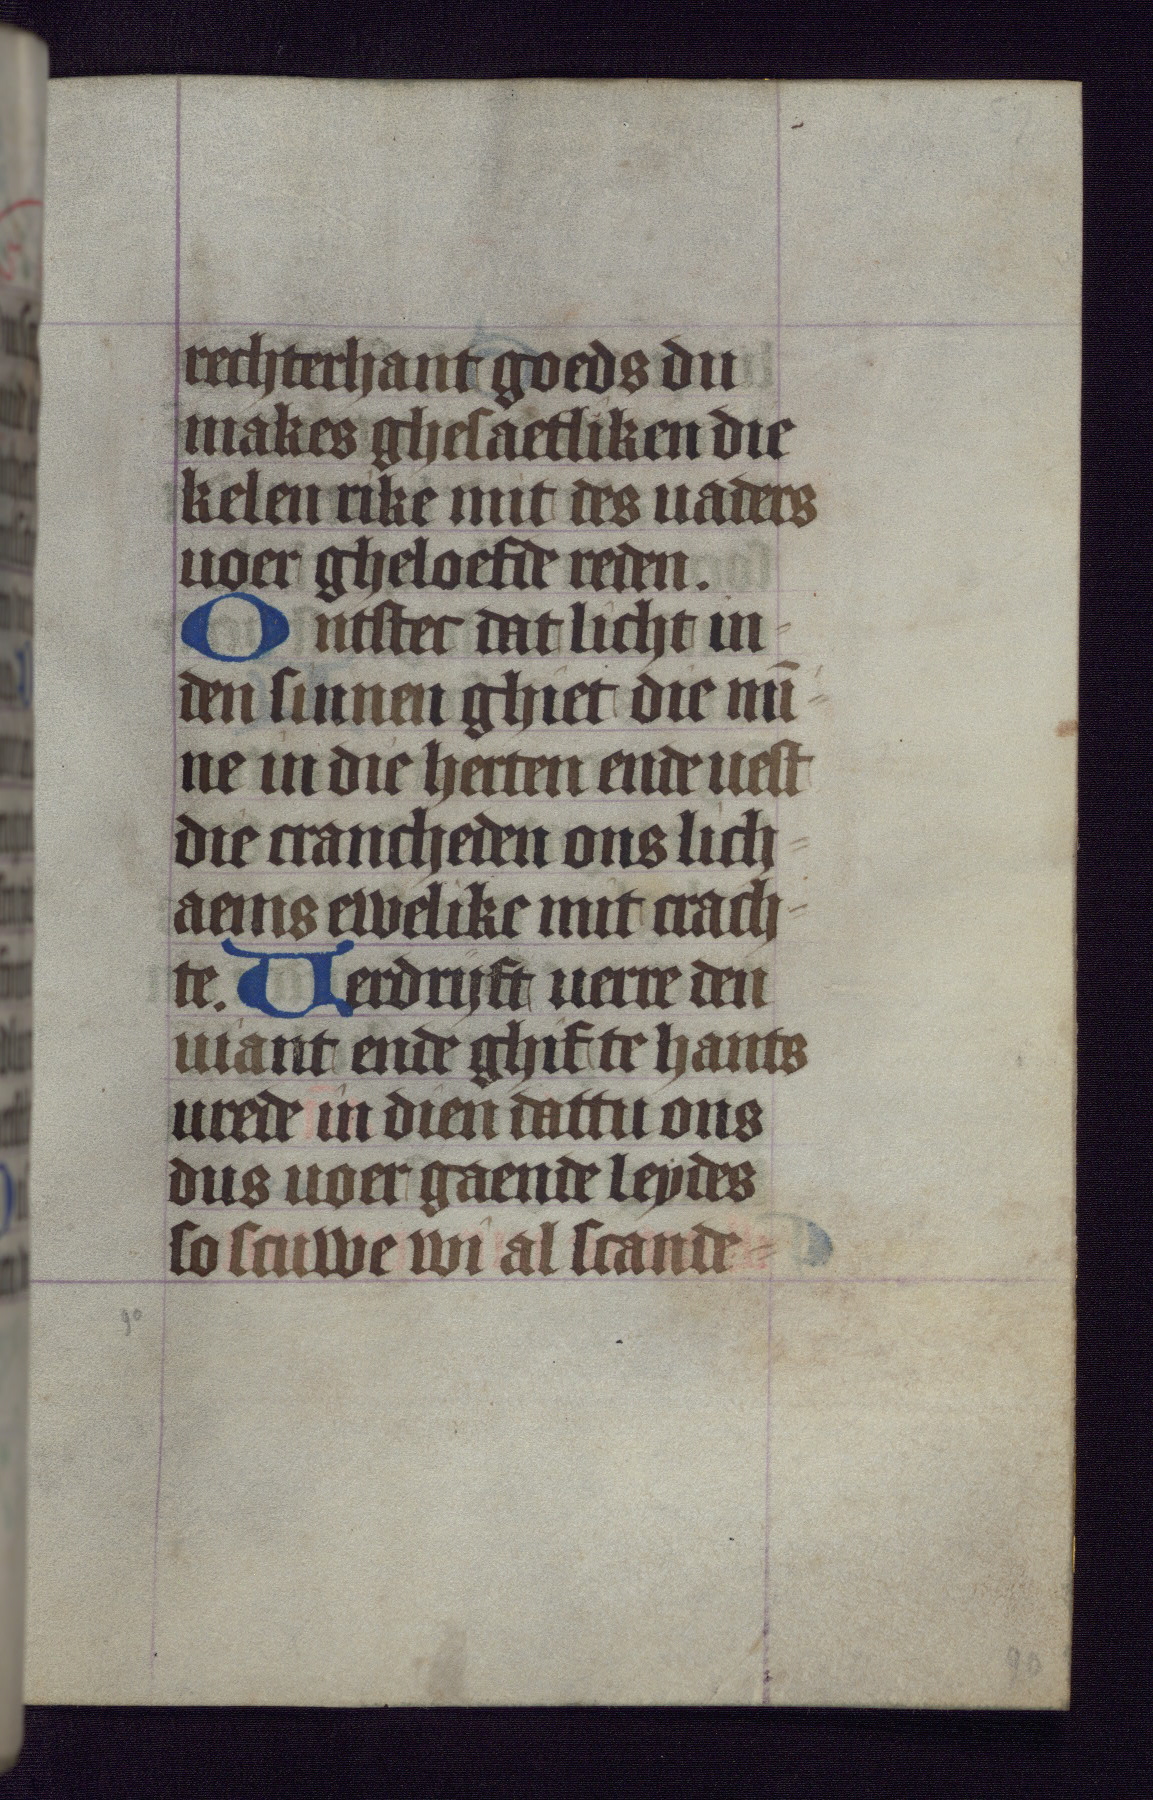 rechterhant goeds du
makes ghesaetliken die
kelen rike mit des uaders
uoer gheloefde reden.
Ontster dat licht in-
den sinnen ghiet die mī-
ne in die herten ende uest
die crancheden ons lich-
aems ewelike mit crach-
te. Uerdrijft uerre den
uiant ende ghif te hants
urede in dien dattu ons
dus uoer gaende leydes
so scuwe wi al scande-
90
90